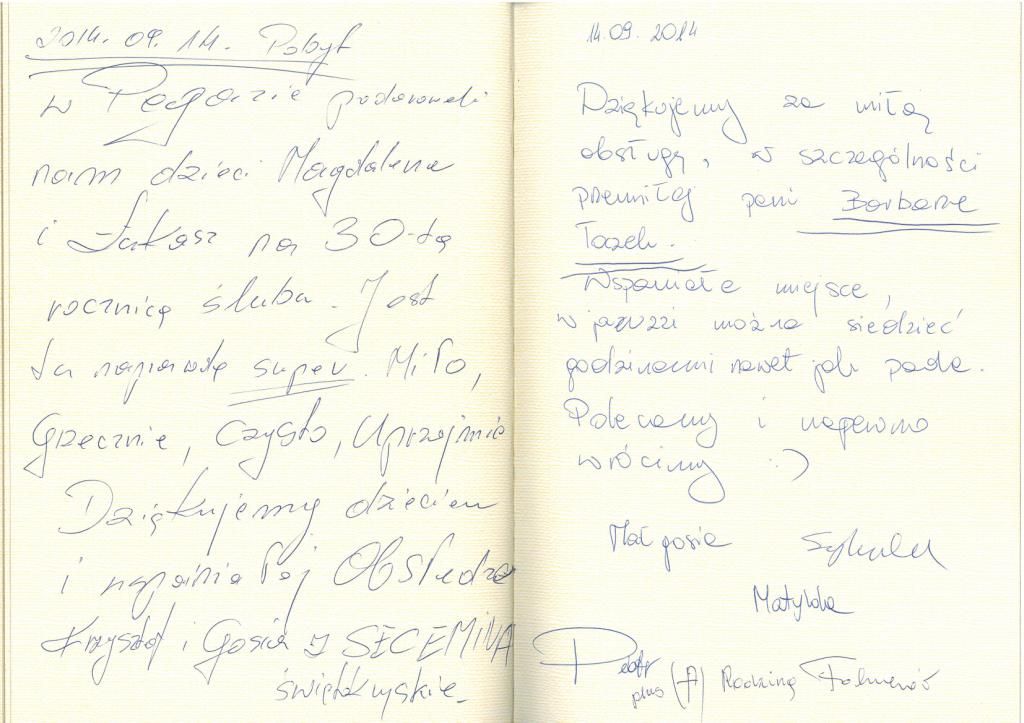 2014.09.14. Pobyt
w Pegazie podarowali
nam dzieci Magdalena
i Łukasz na 30-tą
rocznicę ślubu. Jest
tu naprawdę super. Miło,
Grzecznie, Czysto, Uprzejmie
Dziękujemy dzieciom
i wspaniałej Obsłudze
Krzysztof i Gosia z SECEMINA
świętokrzyskie
14.09.2014
Dziękujemy za miłą
obsługę, w szczególności
przemiłej pani Barbarze
Wspaniałe miejsce,
w jacuzzi można siedzieć
godzinami nawet jak pada.
Polecamy i napewno
wrócimy :)
Małgosia
Matylda
Piotr
plus (A) Rodziną